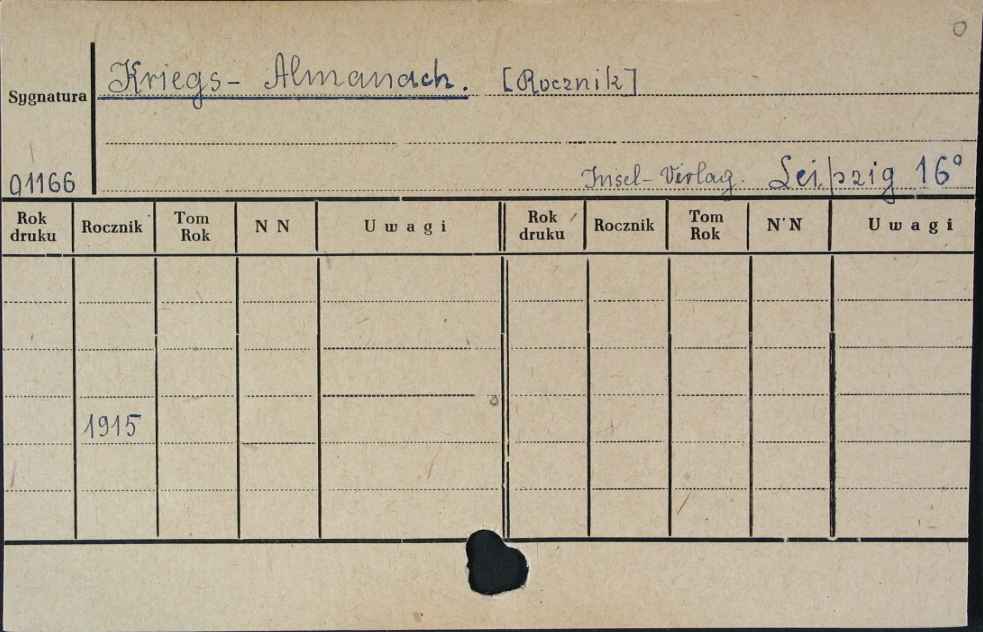 Kriegs- Almanach. [Rocznik]
Sygnatura
91166 Insel-Verlag. Leipzig 16°
Rok druku Rocznik Tom Rok N N Uwagi Rok druku Rocznik Tom Rok N N Uwagi
1915